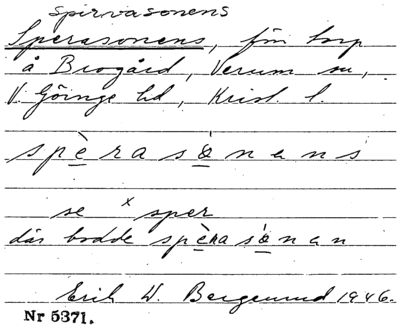 spirvasonens
Sperasonens, förr torp
å Brogård, Verum sn,
V. Göinge hd, Krist. l.
spèrasònens
se x sper
där bodde spèrasònen
Erik W. Bergenrud 1946.
Nr 5371.